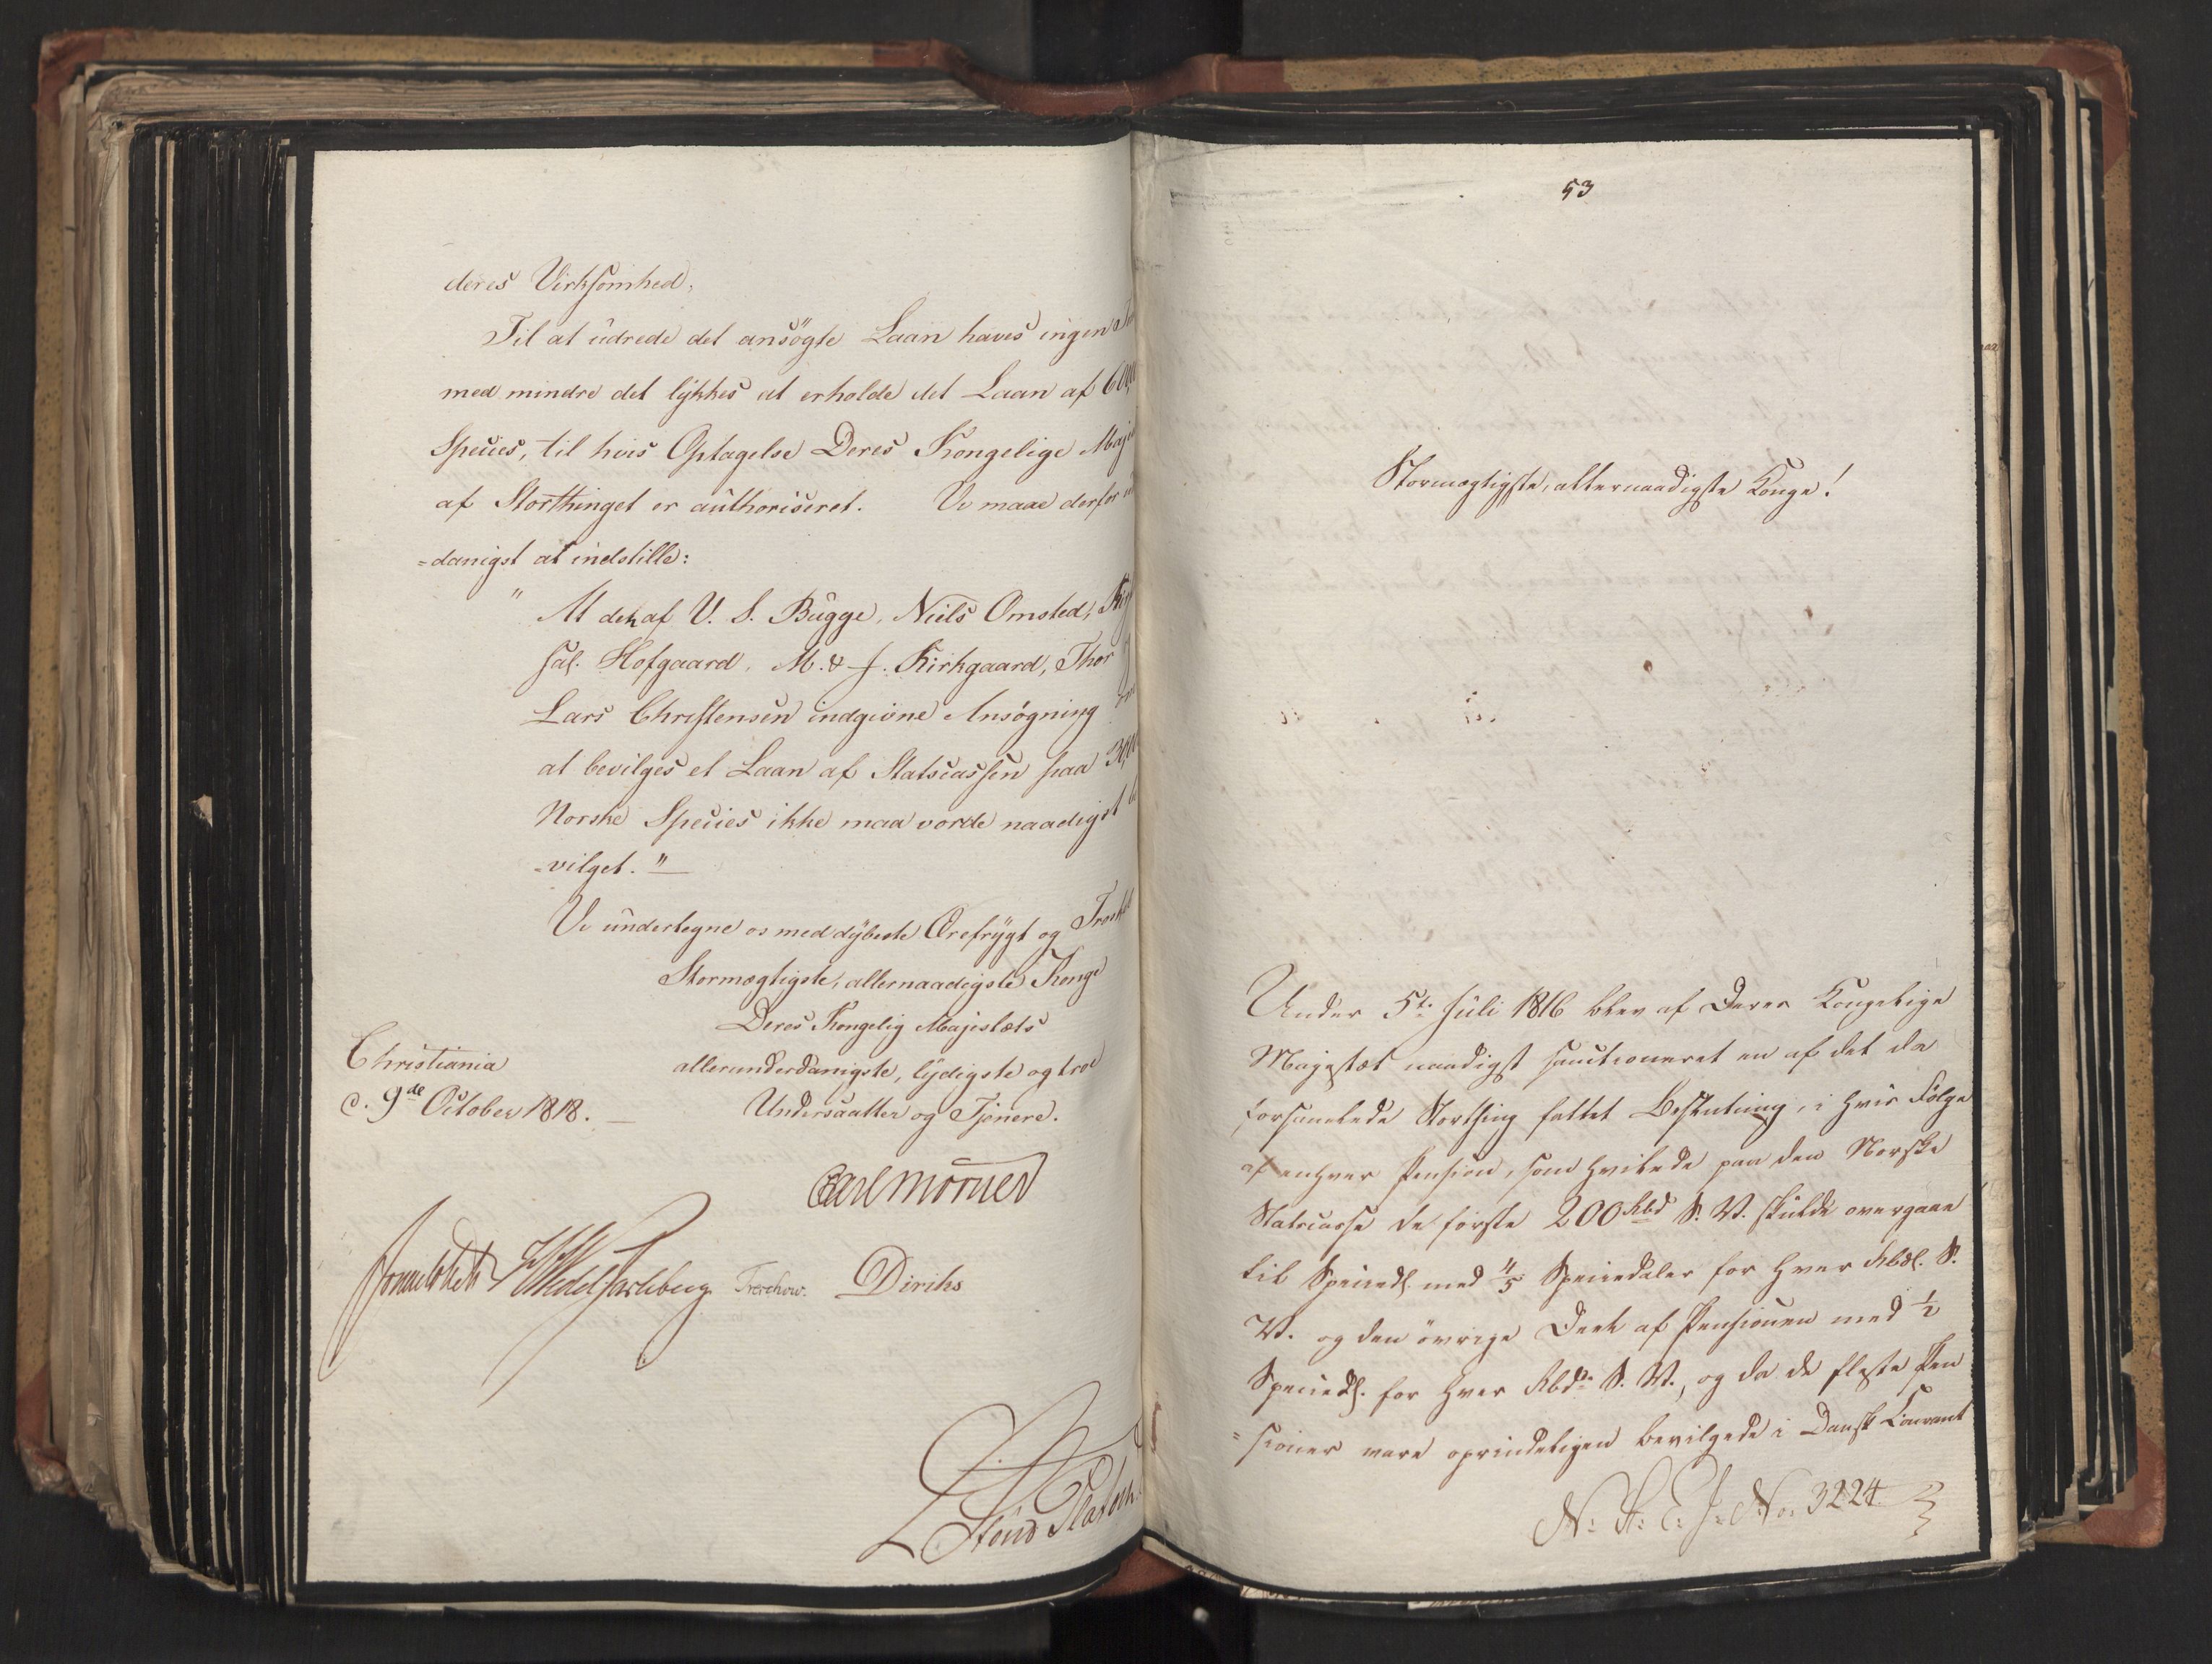 deres Virksomhed,
Til at udrede det ansögte Laan haves ingen
med mindre det lykkes at erholde det Laan af
Species, til hvis Optagelse Deres Kongelige Maj
af Storthinget er authoriseret. Vi maae derfor
=danigst at indstille:
" At den af V. S. Bugge, Niels Omsted,
sal. Hofgaard, M. & J. Kirkgaard, Thor
Lars Christensen indgivne Ansögning om
at bevilges et Laan af Statscassen paa
Norske Species ikke maa vorde naadigst
-vilget. "
Vi undertegne os med dybeste Ærefrygt og Troeskab
Stormægtigste, allernaadigste Konge
Deres Kongelig Majestæts
allerunderdanigste, lydigste og troe
Undersaatter og Tjenere.
Christiania
d. 9de October 1818.
Carl Mörner
Sommerhielm Wedel Jarlsberg Treschow. Diriks
53
Stormægtigste, allernaadigste Konge!
Under 5te Juli 1816 blev af Deres Kongelige
Majestæt naadigst sanctioneret en af det da
forsamlede Storthing fattet Beslutning, i hvis Følge
af enhver Pension, som hvilede paa den Norske
Statscasse de første 200 Rbd S. V. skulde overgaae
til Speciedl. med 4/5 Speciedaler for hver Rbdl. S.
V. og den övrige Deel af Pensionen med 1/2
Speciedl. for hver Rbdr S. V., og da de fleste Pen
=sioner vare oprindeligen bevilgede i Dansk Courant
N: St: C: J: No. 3224.